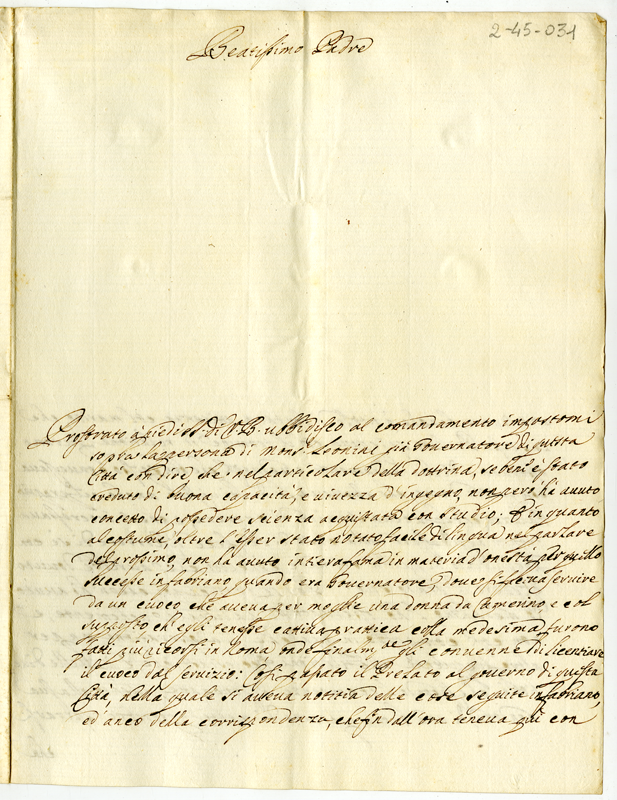 2-45-031
Beatissimo Padre
Prostrato a piedi SS. di V. B. ubbidisco al comandamento impostomi
sopra la persona di Mons. Leonini già Governatore di questa
Città con dire, che nel particolare della dottrina, se bene è stato
creduto di buona capacità, e vivezza d'ingegno, non però hà auuto
concetto di possedere scienza acquistata con studio; & in quanto
al costume, oltre l'esser stato notato facile di lingua nel parlare
del prossimo, non hà auuto intiera fama in materia d'onestà per quello
successe in fabriano quando era Governatore, doue si faceua seruire
da un cuoco, che aueua per moglie una donna da Camerino, e col
supposto ch'egli tenesse cattiua prattica colla medesima furono
fatti più ricorsi in Roma onde finalm.te gli conuenne di licentiare
il cuoco dal seruizio: Così passato il Prelato al gouerno di questa
Città, nella quale si aueua notitia delle cose seguite in fabriano,
ed anco della corrispondenza, che fin dall'ora teneua quì con